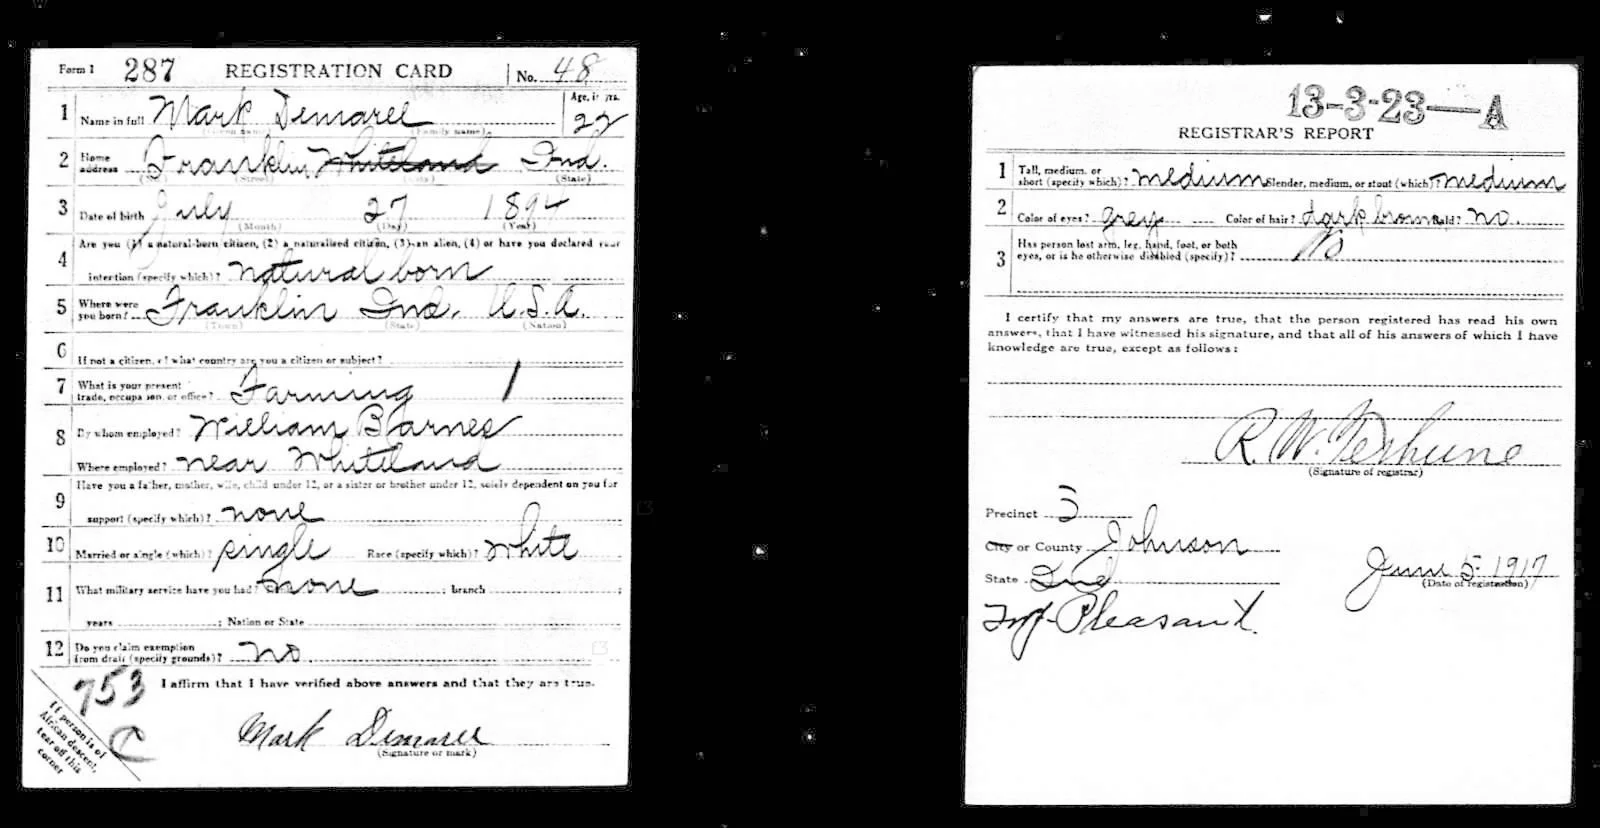 Form 1 287 REGISTRATION CARD No. 48
1 Name in full Mark Demaree Age, in yrs. 22
(Given name) (Family name)
2 Home address Franklin, Whiteland Ind.
(Street) (City) (State)
3 Date of birth July 27 1894
(Month) (Day) (Year)
4 Are you (1) a natural-born citizen, (2) a naturalized citizen, (3) an alien, (4) or have you declared your
intention (specify which)? natural born
5 Where were you born? Franklin Ind. U.S.A.
(Town) (State) (Nation)
6 If not a citizen, of what country are you a citizen or subject?
7 What is your present trade, occupation, or office? Farming 1
8 By whom employed? William Barnes
Where employed? near Whiteland
9 Have you a father, mother, wife, child under 12, or a sister or brother under 12, solely dependent on you for
support (specify which)? none
10 Married or single (which)? single Race (specify which)? White
11 What military service have you had? none ; branch ;
years ; Nation or State
12 Do you claim exemption from draft (specify grounds)? no
I affirm that I have verified above answers and that they are true.
753
C
Mark Demaree
(Signature or mark)
If person is of
African descent,
tear off this
corner
13-3-23-A
REGISTRAR'S REPORT
1 Tall, medium, or short (specify which)? medium Slender, medium, or stout (which)? medium
2 Color of eyes? grey Color of hair? dark brown Bald? no.
3 Has person lost arm, leg, hand, foot, or both
eyes, or is he otherwise disabled (specify)? No
I certify that my answers are true, that the person registered has read his own
answers, that I have witnessed his signature, and that all of his answers of which I have
knowledge are true, except as follows:
R. W. Terhune
(Signature of registrar)
Precinct 3
City or County Johnson
State Ind
June 5- 1917
(Date of registration)
Pleasant.